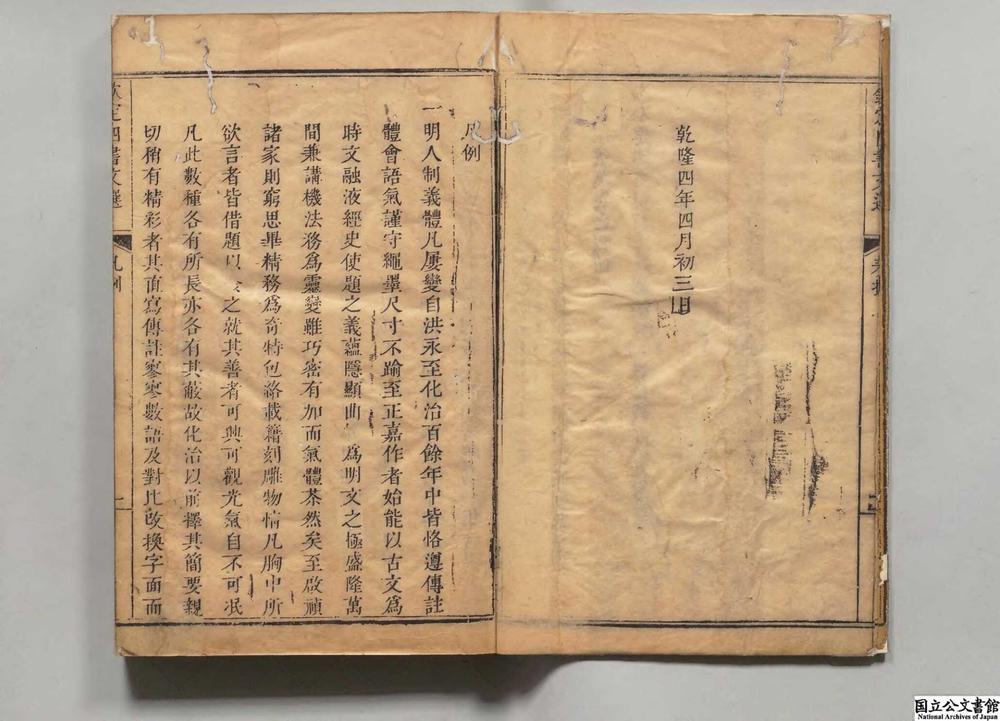 乾隆四年四月初三日
凡例
一明人制義體凡屢變自洪永至化治百餘年中皆恪遵傳註
體會語氣謹守繩墨尺寸不踰至正嘉作者始能以古文爲
時文融液經史使題之義蘊隱顯曲 爲明文之極盛隆萬
間兼講機法務爲靈變雖巧密有加而氣體茶然矣至啟禎
諸家則窮思畢精務爲奇特包絡載籍刻雕物情凡胸中所
欲言者皆借題以 之就其善者可興可觀光氣自不可泯
凡此數種各有所長亦各有其蔽故化治以前擇其簡要親
切稍有精彩者其直寫傳註寥寥數語及對比改換字面而
四書文選
凡例
一
1
国立公文書館
National Archives of Japan